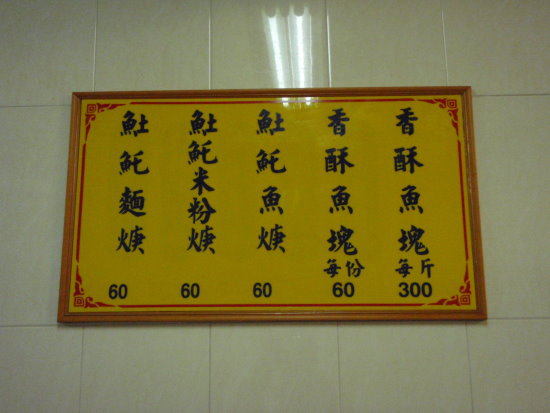 香酥魚塊每斤 300
香酥魚塊每份 60
𩵚魠魚焿 60
𩵚魠米粉焿 60
𩵚魠麵焿 60